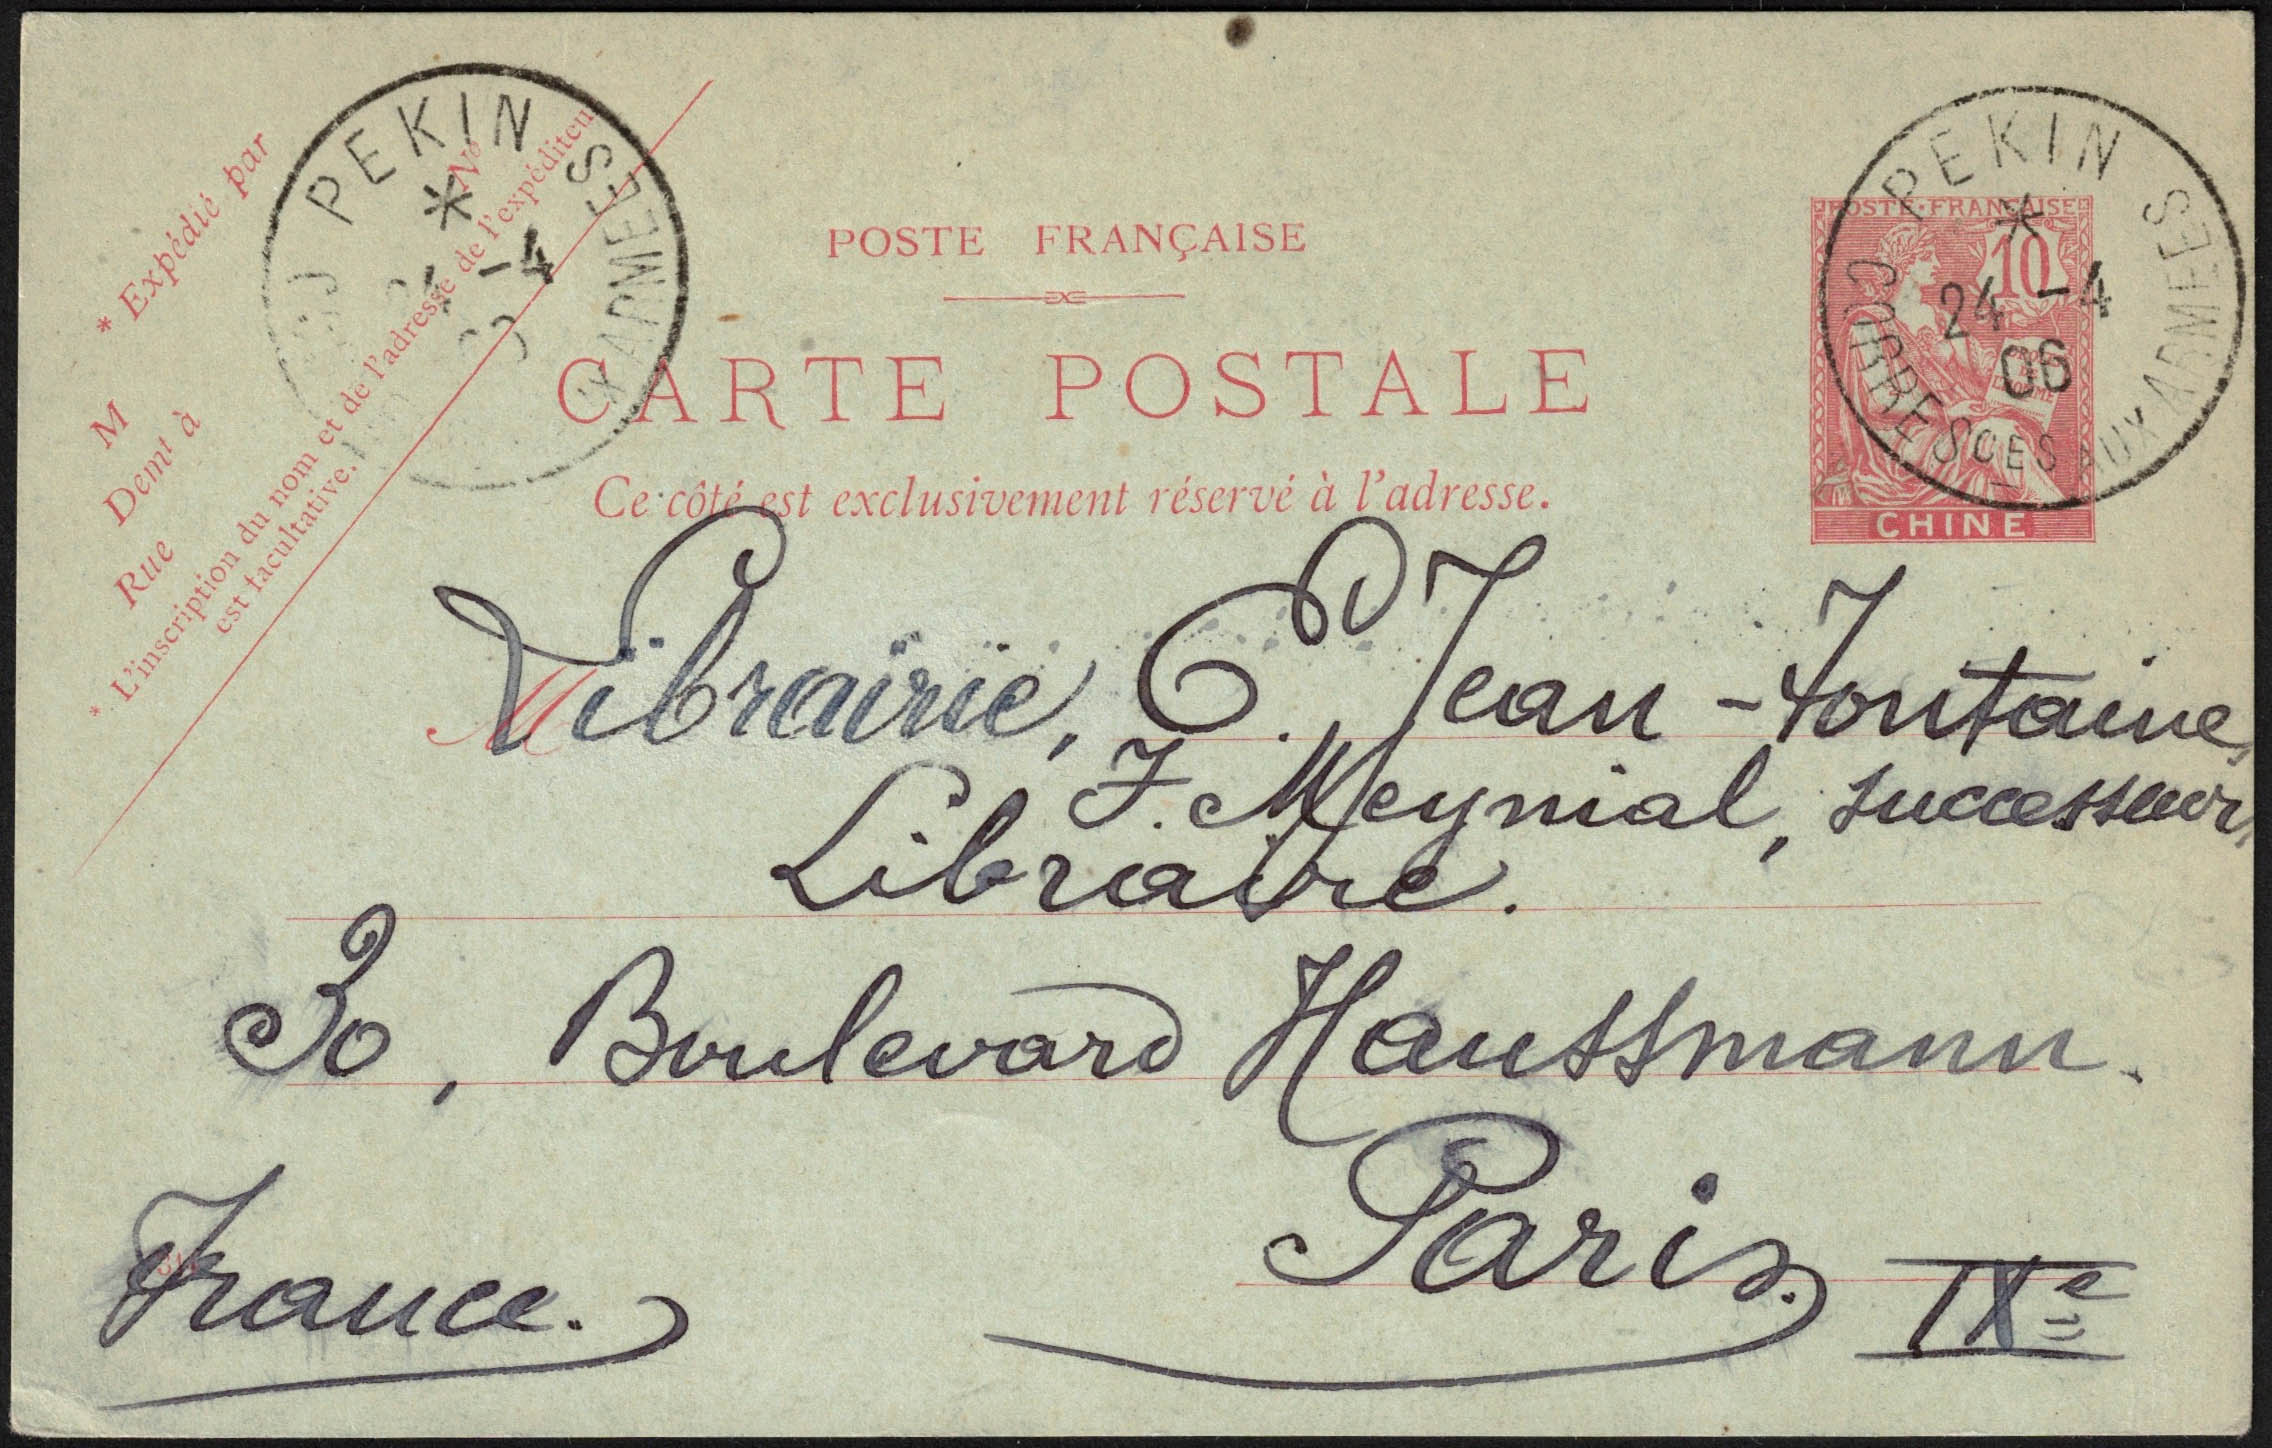 PEKIN
24 -4
06
CORRESCES AUX ARMEES
PEKIN
-4
X ARMEES
POSTE FRANÇAISE
POSTE·FRANÇAISE
10
CHINE
CARTE POSTALE
Ce côté est exclusivement réservé à l'adresse.
* Expédié par
M
Demt à
Rue
No
* L'inscription du nom et de l'adresse de l'expéditeur
est facultative.
M
Librairie, E. Jean-Fontaine,
J. Meynial, successeur,
Libraire.
30, Boulevard Haussmann.
Paris. IXe
France.